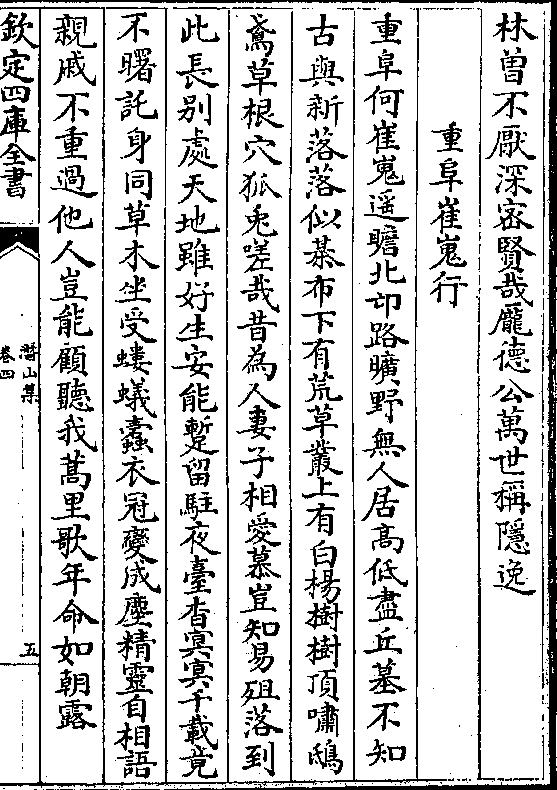 林曾不厭深密賢哉龐德公萬世稱隱逸
重阜崔嵬行
重阜何崔嵬遥瞻北邙路曠野無人居高低盡丘墓不知
古與新落落似棊布下有荒草叢上有白楊樹樹頂嘯鴟
鳶草根穴狐兎嗟哉昔為人妻子相愛慕豈知易殂落到
此長别處天地雖好生安能蹔留駐夜臺杳冥冥千載竟
不曙託身同草木坐受螻蟻蠹衣冠變成塵精靈自相語
親戚不重過他人豈能顧聽我蒿里歌年命如朝露
欽定四庫全書
潛山集
卷四
五